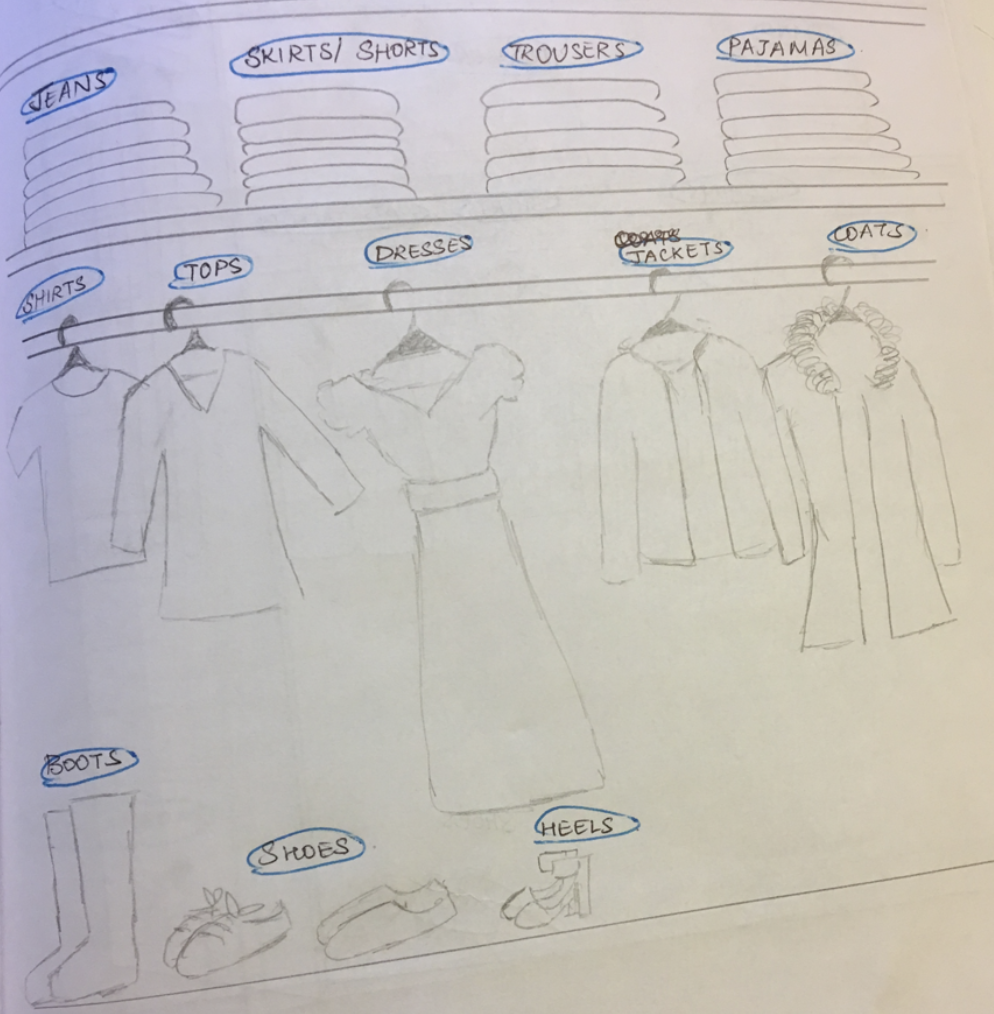 JEANS
SKIRTS/ SHORTS
TROUSERS
PAJAMAS
SHIRTS
TOPS
DRESSES
JACKETS
COATS
BOOTS
SHOES
HEELS